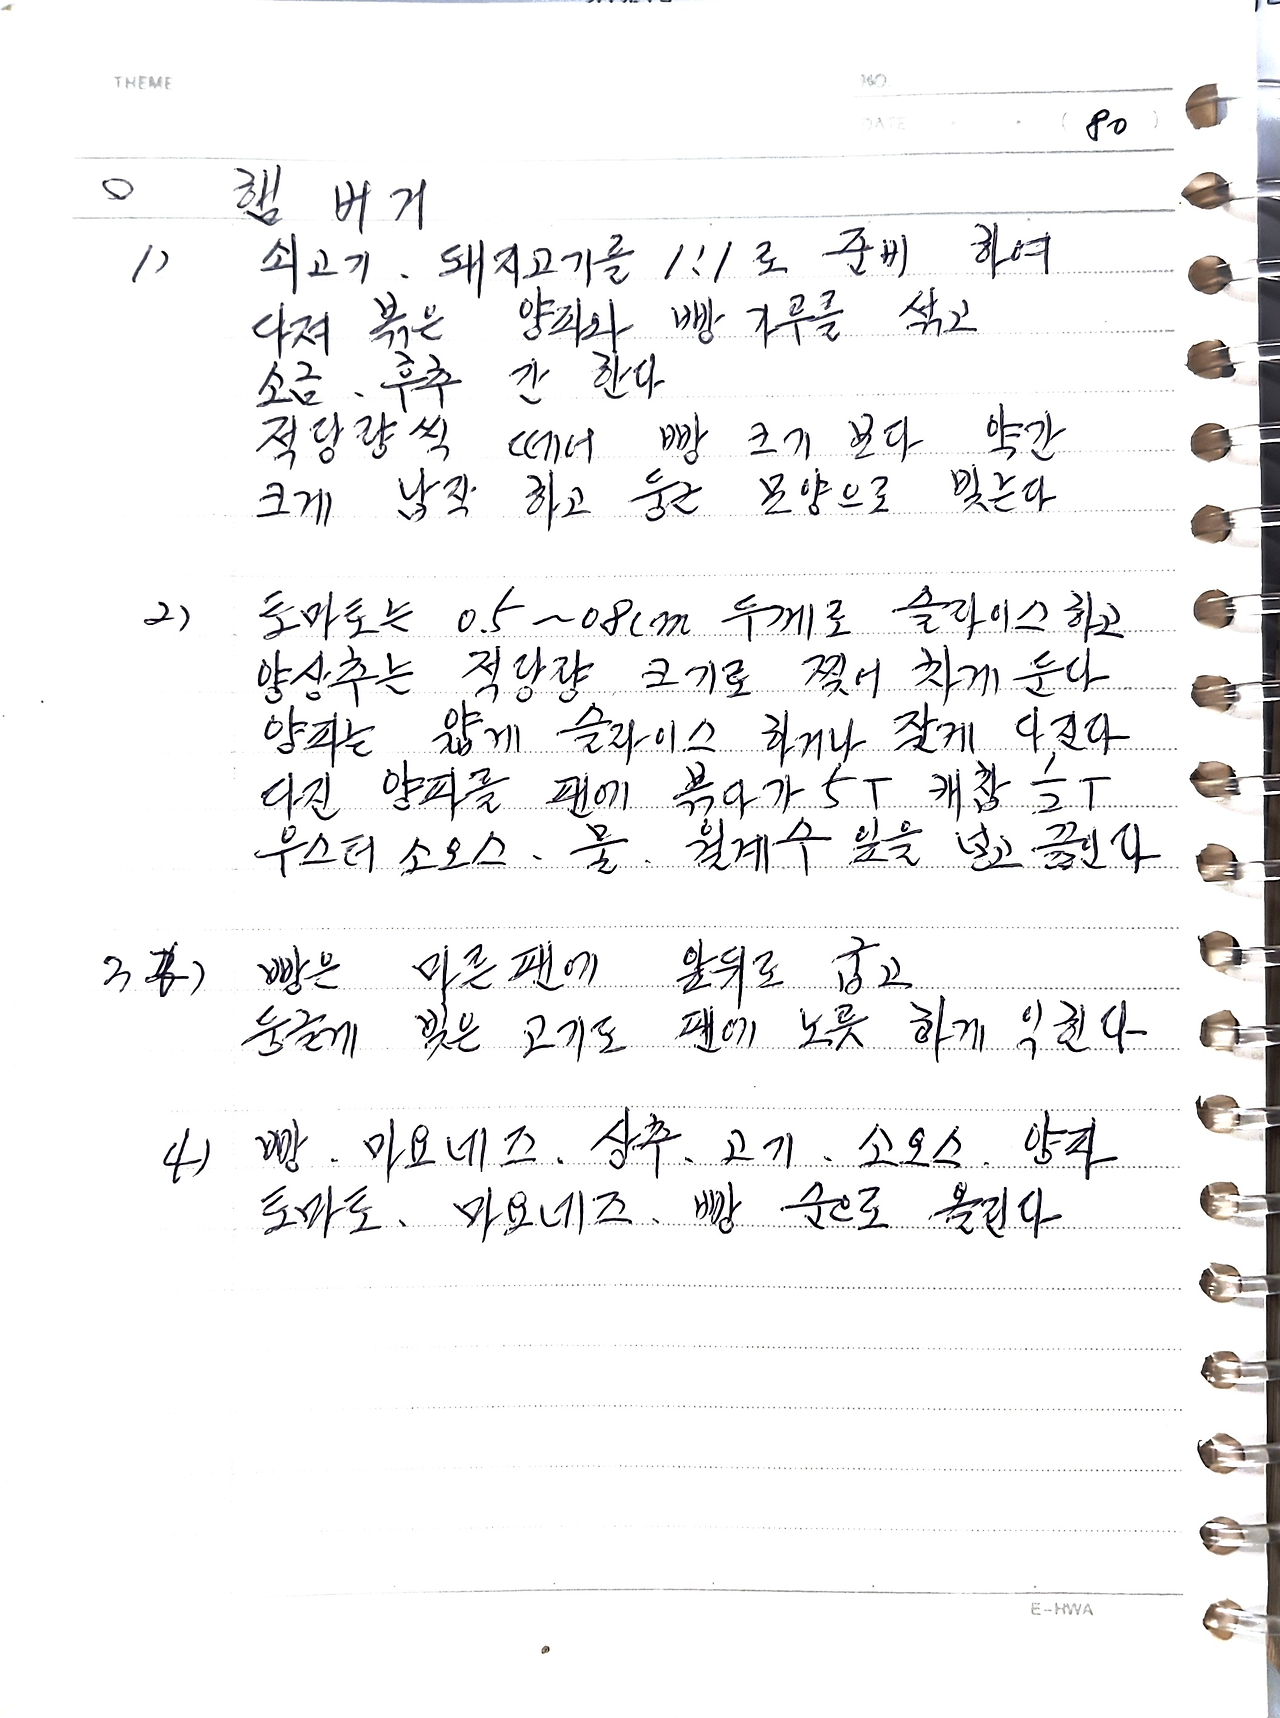 THEME
NO.
DATE . . ( 80 )
○ 햄 버 거
1) 쇠고기 . 돼지고기를 1:1 로 준비 하여
다져 볶은 양파와 빵 가루를 섞고
소금 . 후추 간 한다
적당량씩 떼어 빵 크기 보다 약간
크게 납작 하고 둥근 모양으로 빚는다
2) 토마토는 0.5~08cm 두께로 슬라이스 하고
양상추는 적당량 크기로 찢어 차게 둔다
양파는 얇게 슬라이스 하거나 잘게 다진다
다진 양파를 팬에 볶아가 5T 캐찹 ½T
우스터 소오스 . 물 . 월계수 잎을 넣고 끓인다
3) 빵은 마른팬에 앞뒤로 굽고
둥글게 빚은 고기도 팬에 노릇 하게 익힌다
4) 빵 . 마요네즈 . 상추 . 고기 . 소오스 . 양파
토마토 . 마요네즈 . 빵 순으로 올린다
E-HWA